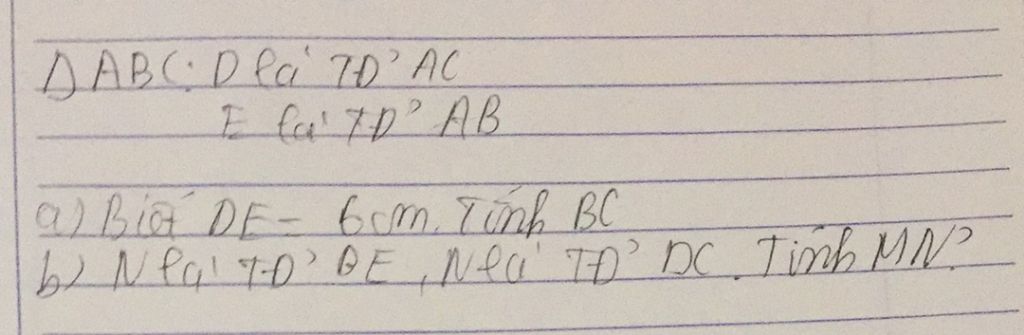 Δ ABC: D là TĐ' AC
E là TĐ' AB
a) Biết DE = 6cm. Tính BC
b) N là TĐ' BE, N là TĐ' DC. Tính MN?